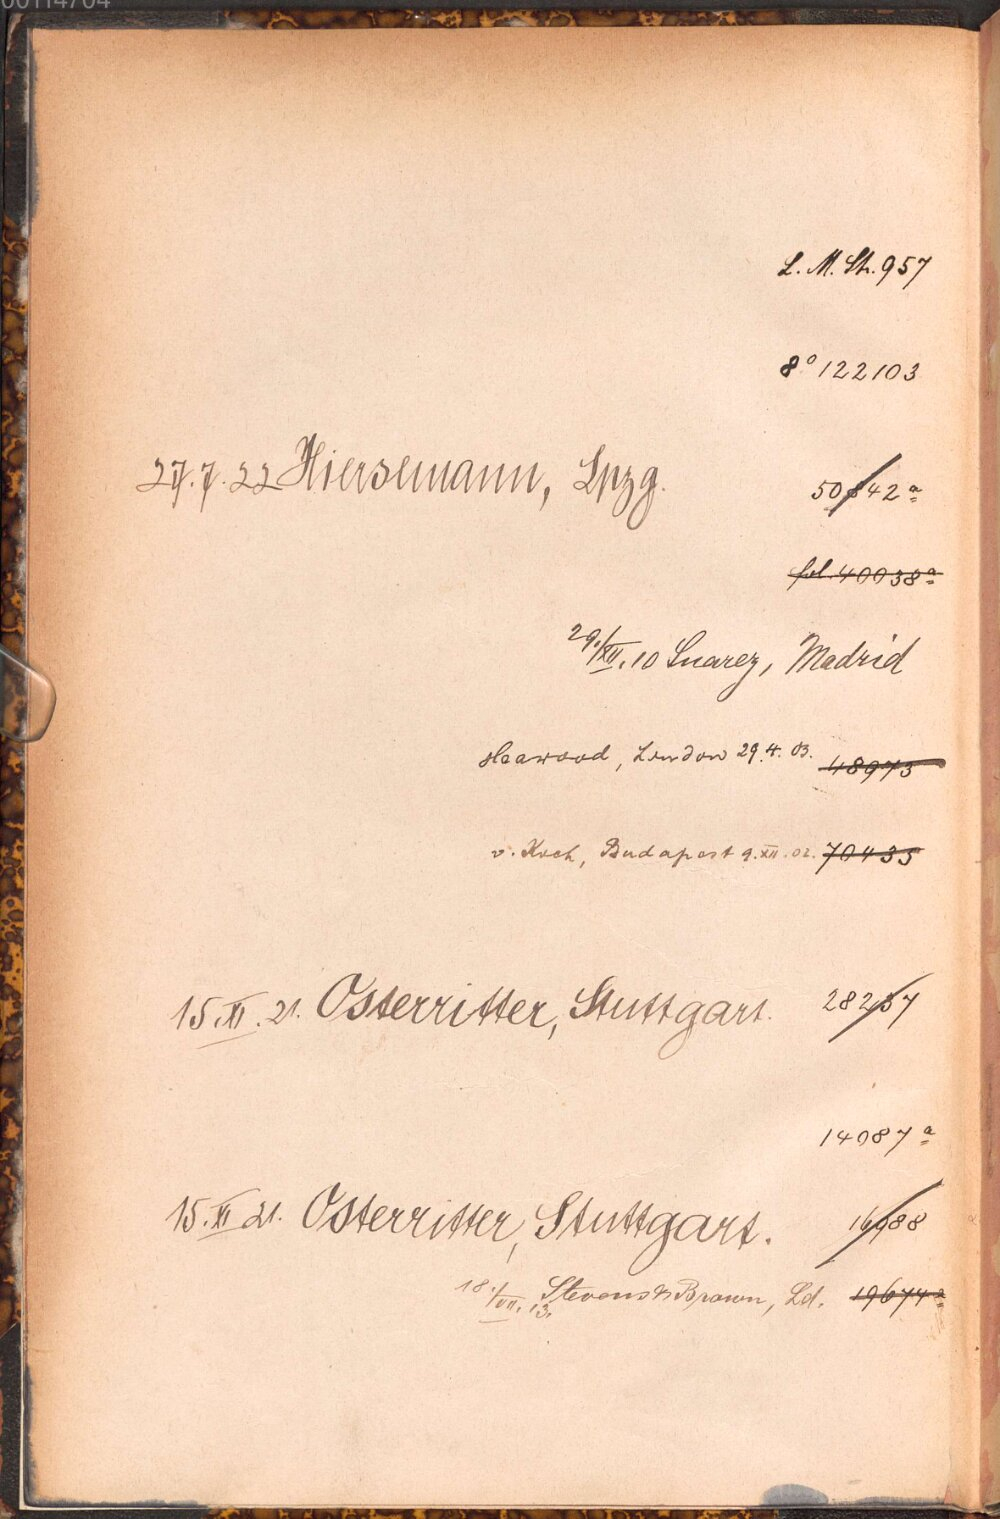 00114704
L. M. St. 957
8° 122103
27.7.22 Hiersemann, Lpzg. 50842 a
fol. 40038 a
29./XII.10 Suarez, Madrid
Heawood, London 29.4.03. 48973
v. Koch, Budapest 9.XII.02. 70435
15.XI.21. Osterritter, Stuttgart. 28257
14087 a
15.XI 21. Osterritter, Stuttgart. 16988
18./VII.13. Stevens & Brown, Ld. 19674 a